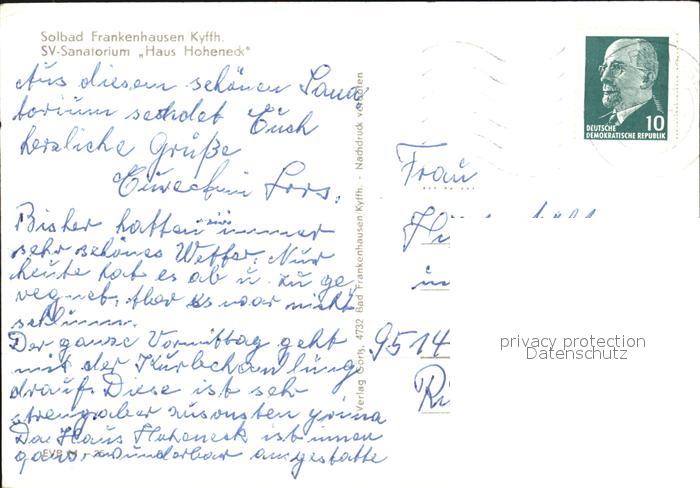 Solbad Frankenhausen Kyffh.
SV-Sanatorium „Haus Hoheneck"
Aus diesem schönen Sana
torium sendet Euch
herzliche Grüße
Bisher hatten wir immer
sehr schönes Wetter. Nur
heute hat es ab u. zu ge
regnet. Aber es war nicht
schlimm.
Der ganze Vormittag geht
mit der Kurbehandlung
drauf. Diese ist sehr
ansonsten prima
Das Haus Hoheneck ist innen
ganz wunderbar ausgestatte
EVP
Verlag Görtz, 4732 Bad Frankenhausen Kyffh. - Nachdruck verboten
DEUTSCHE
DEMOKRATISCHE REPUBLIK
10
Frau
in
9514
privacy protection
Datenschutz